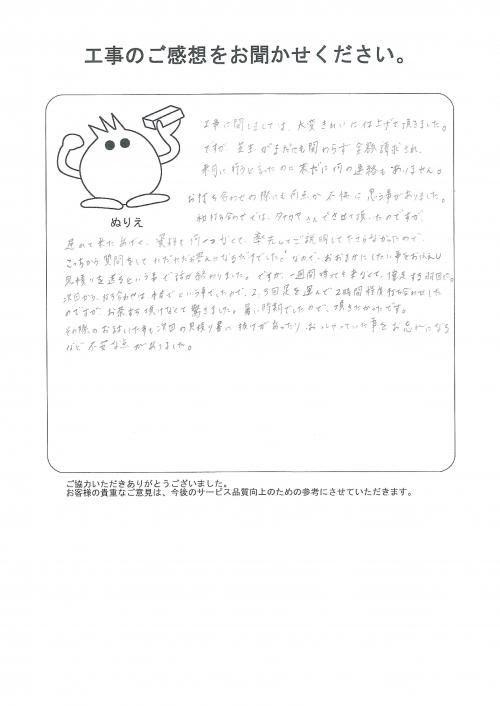 工事のご感想をお聞かせください。
工事に関しましては、大変きれいに仕上げて頂きました。
ですが、芝生がまだにも関わらず全額請求され、
来月に行うと言ったのに未だに何の連絡もありません。
お打ち合わせの際にも何点か不快に思う事がありました。
打ち合わせでは、さんでさせて頂いたのですが、
ぬりえ
進めて来たあげく、資料も何一つなくて、率先してご説明して下さらなかったので、
こっちから質問をして
見積りを送るという事で話が終わりました。ですが、一週間待っても来なくて、催促する羽目に。
次回から、打ち合わせはという事でしたので、2,3回足を運んで2時間程度打ち合わせした
のですが、お茶すら頂けなくて驚きました。暑い時期でしたので、頂きたかったです。
その際のお話しした事も次回の見積り書に抜けがあったり、おっしゃっていた事をお忘れになる
など不安な点がありました。
ご協力いただきありがとうございました。
お客様の貴重なご意見は、今後のサービス品質向上のための参考にさせていただきます。